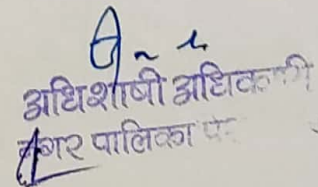 अधिशाषी अधिकारी
नगर पालिका